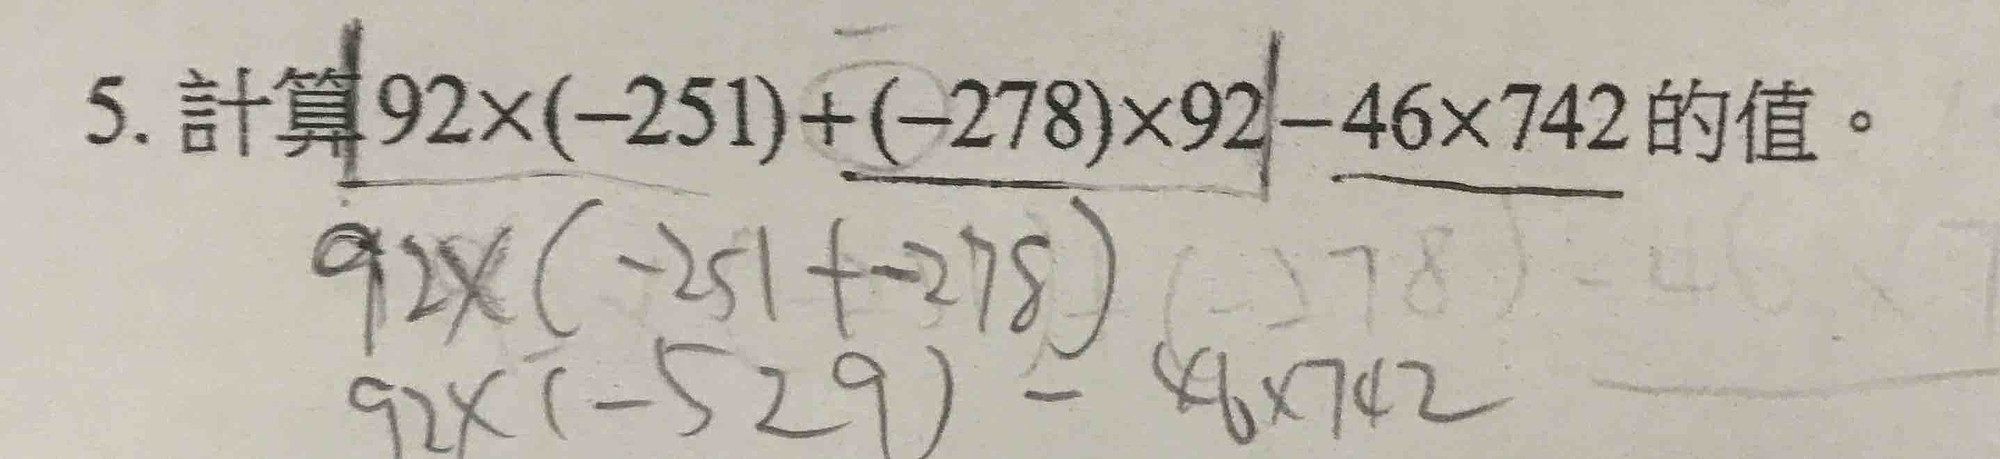 5. 計算92×(−251)+(−278)×92−46×742的值。
92×(-251+-278) (-278)-46×7
92×(-529)-46×742